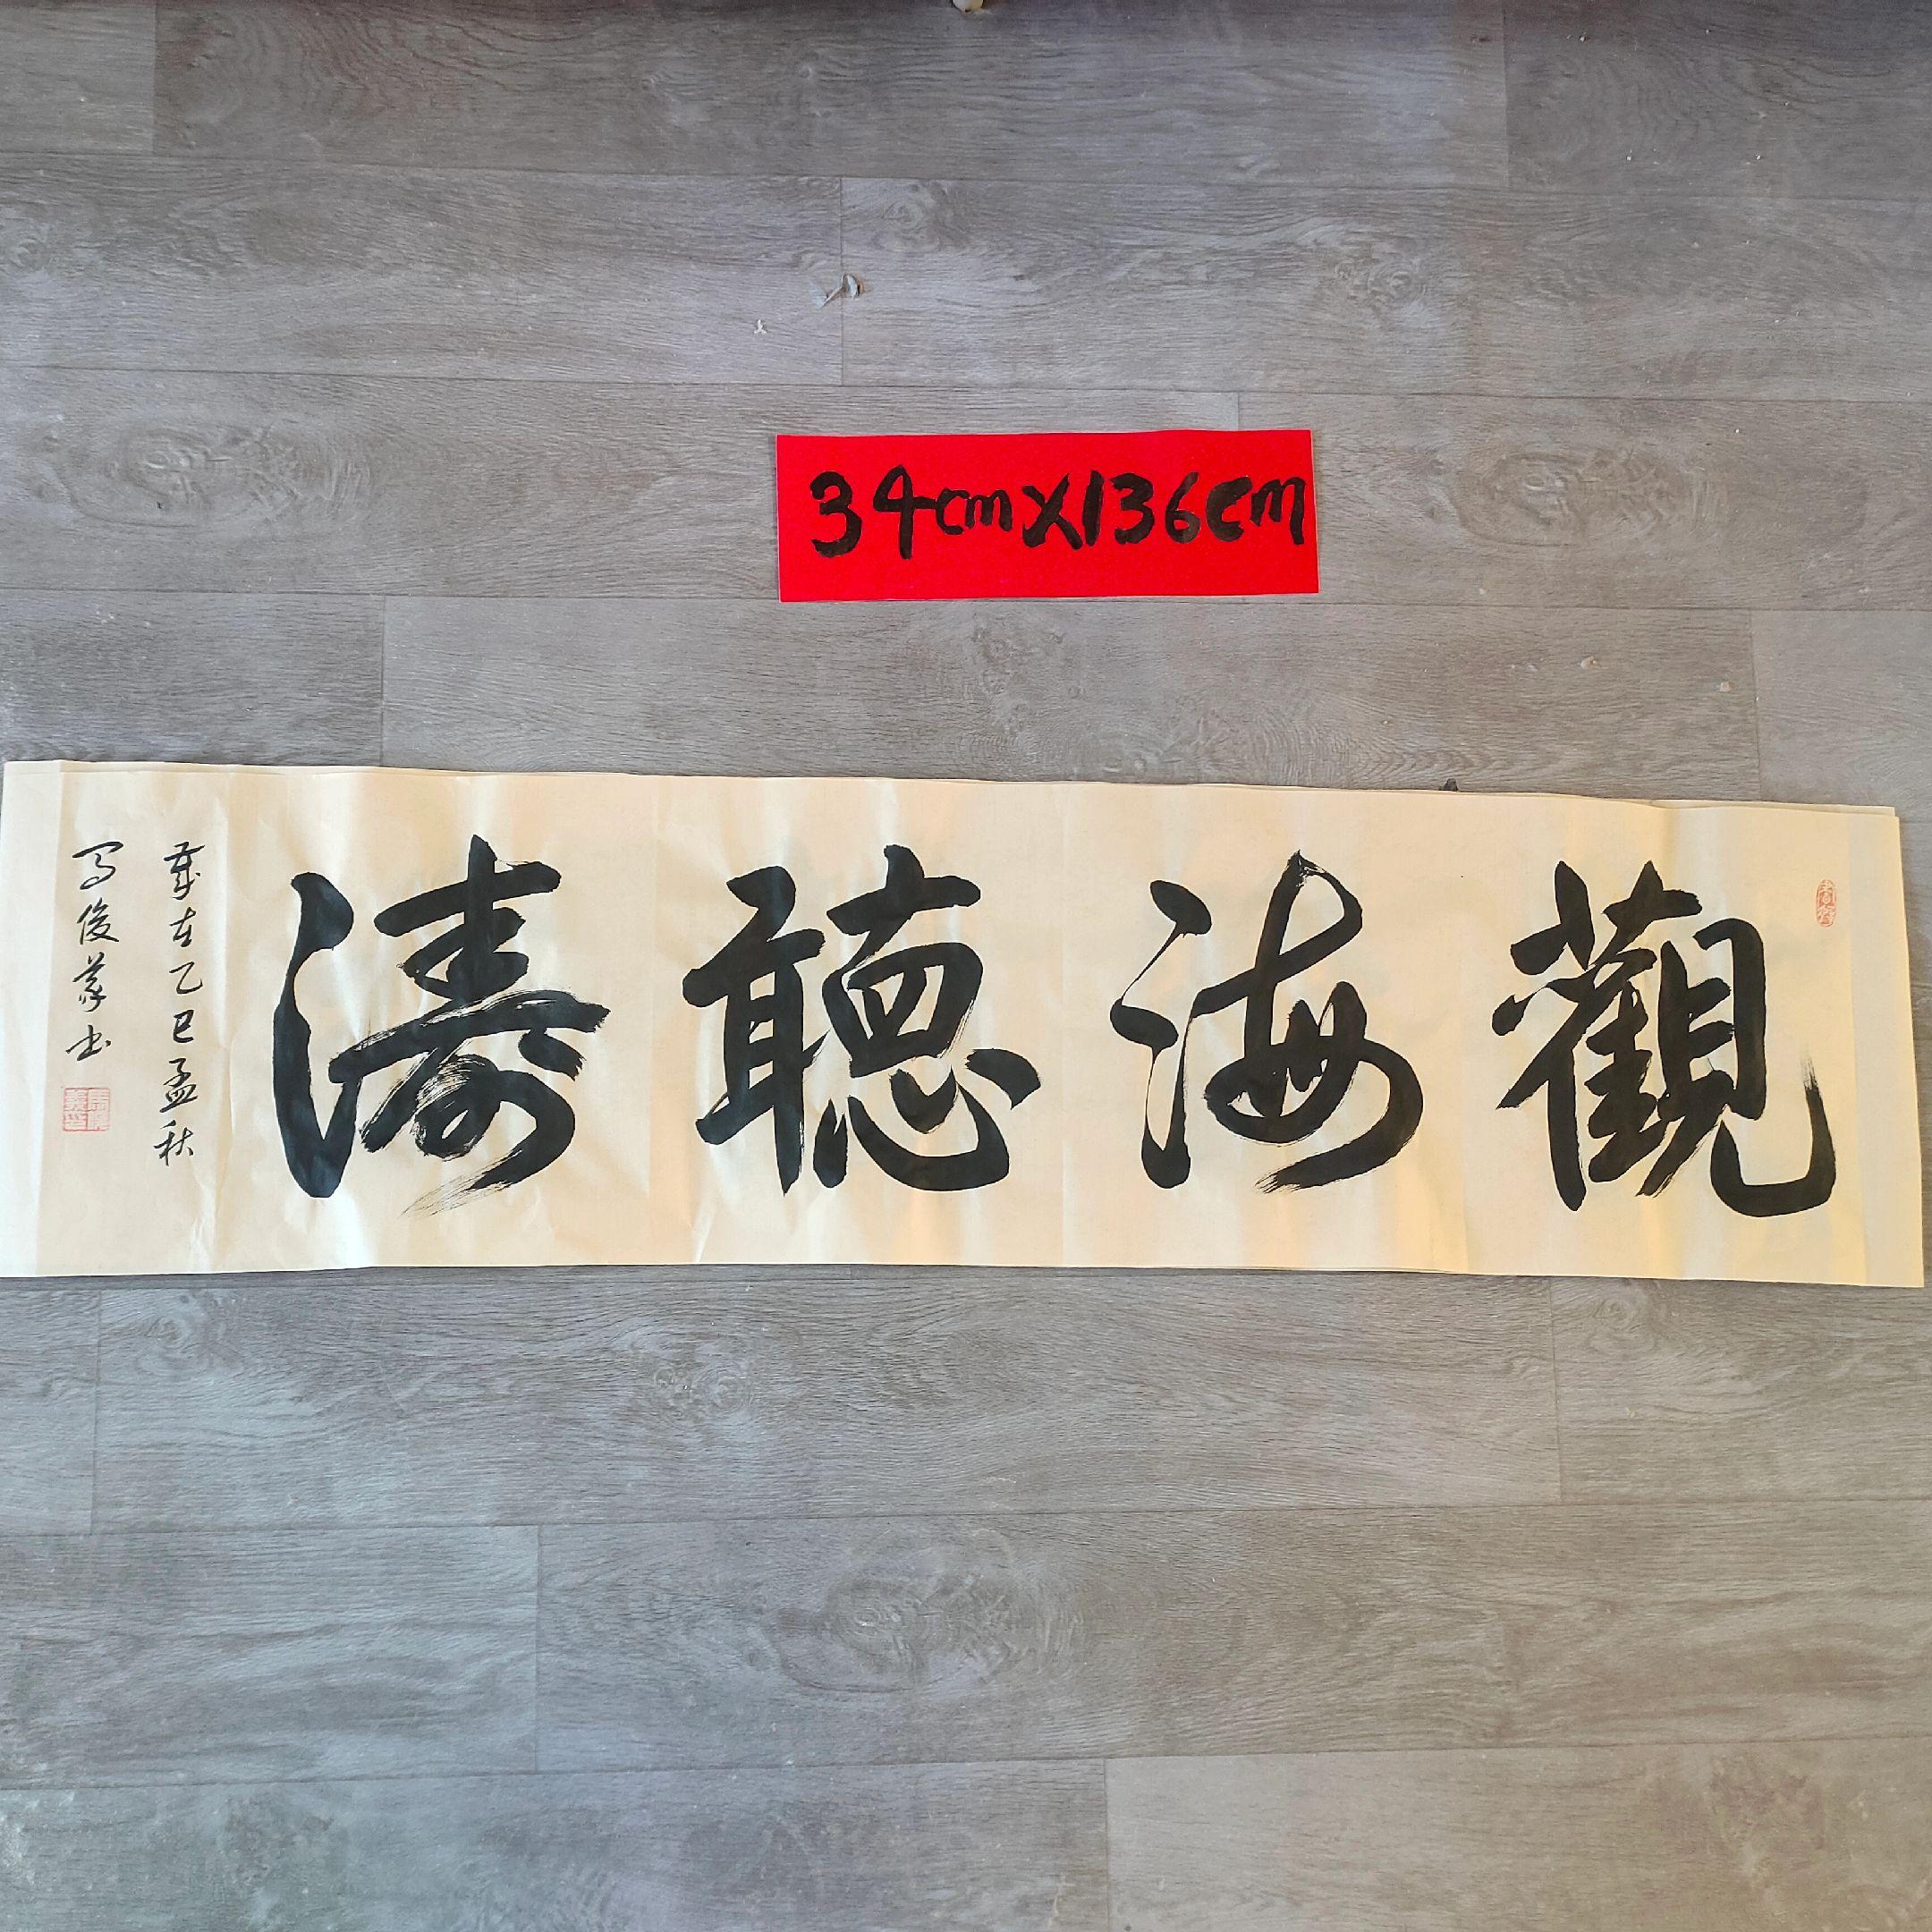 34cm×136cm
觀海聽濤
歲在乙巳孟秋
馬俊義書